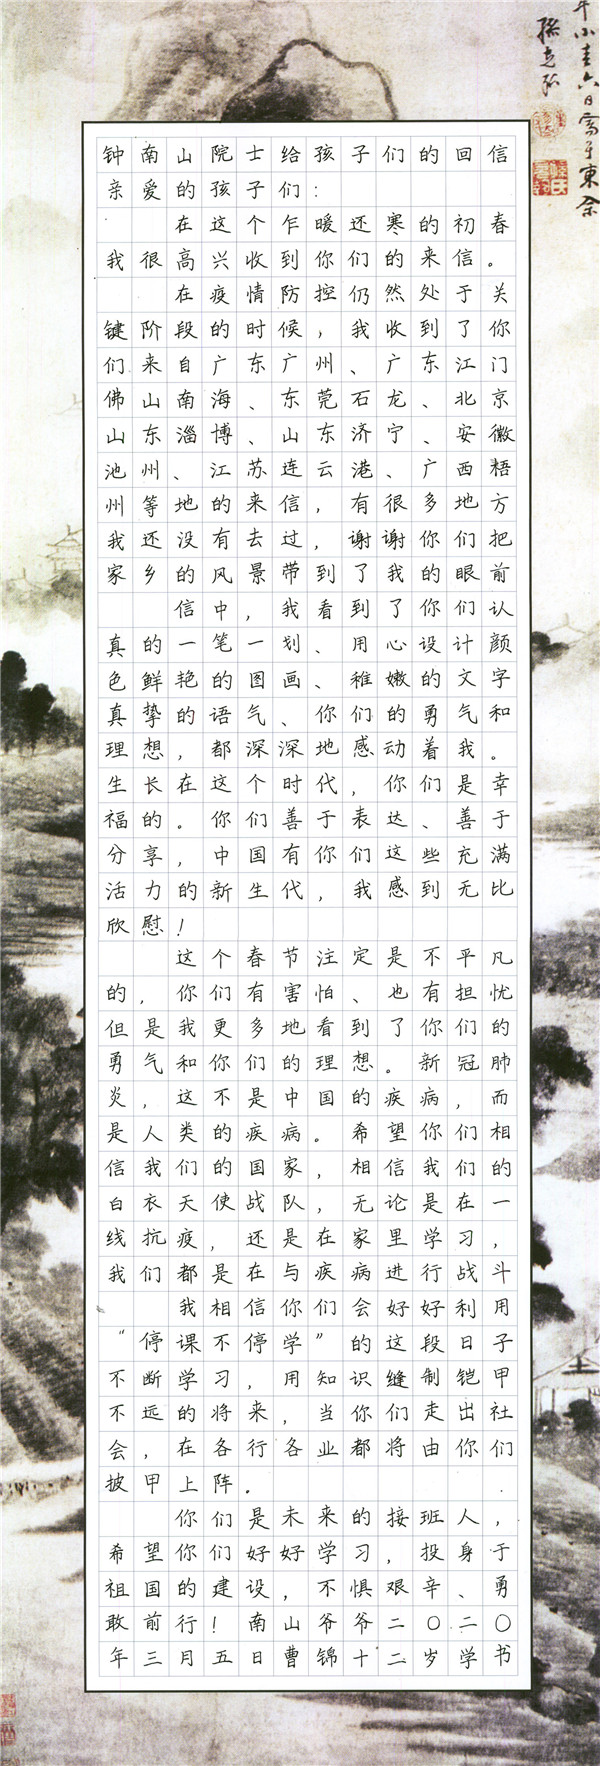 钟南山院士给孩子们的回信
亲爱的孩子们：
在这个乍暖还寒的初春
我很高兴收到你们的来信。
在疫情防控仍然处于关
键阶段的时候，我收到了你
们来自广东广州、广东江门
佛山南海、东莞石龙、北京
山东淄博、山东济宁、安徽
池州、江苏连云港、广西梧
州等地的来信，有很多地方
我还没有去过，谢谢你们把
家乡的风景带到了我的眼前
信中，我看到了你们认
真的一笔一划、用心设计颜
色鲜艳的图画、稚嫩的文字
真挚的语气、你们的勇气和
理想，都深深地感动着我。
生长在这个时代，你们是幸
福的。你们善于表达、善于
分享，中国有你们这些充满
活力的新生代，我感到无比
欣慰！
这个春节注定是不平凡
的，你们有害怕、也有担忧
但是我更多地看到了你们的
勇气和你们的理想。新冠肺
炎，这不是中国的疾病，而
是人类的疾病。希望你们相
信我们的国家，相信我们的
白衣天使战队，无论是在一
线抗疫，还是在家里学习，
我们都是在与疾病进行战斗
我相信你们会好好利用
“停课不停学”的这段日子
不断学习，用知识缝制铠甲
不远的将来，当你们走出社
会，在各行各业都将由你们
披甲上阵．
你们是未来的接班人，
希望你们好好学习，投身于
祖国的建设，不惧艰辛、勇
敢前行！南山爷爷二〇二〇
年三月五日曹锦十二岁学书